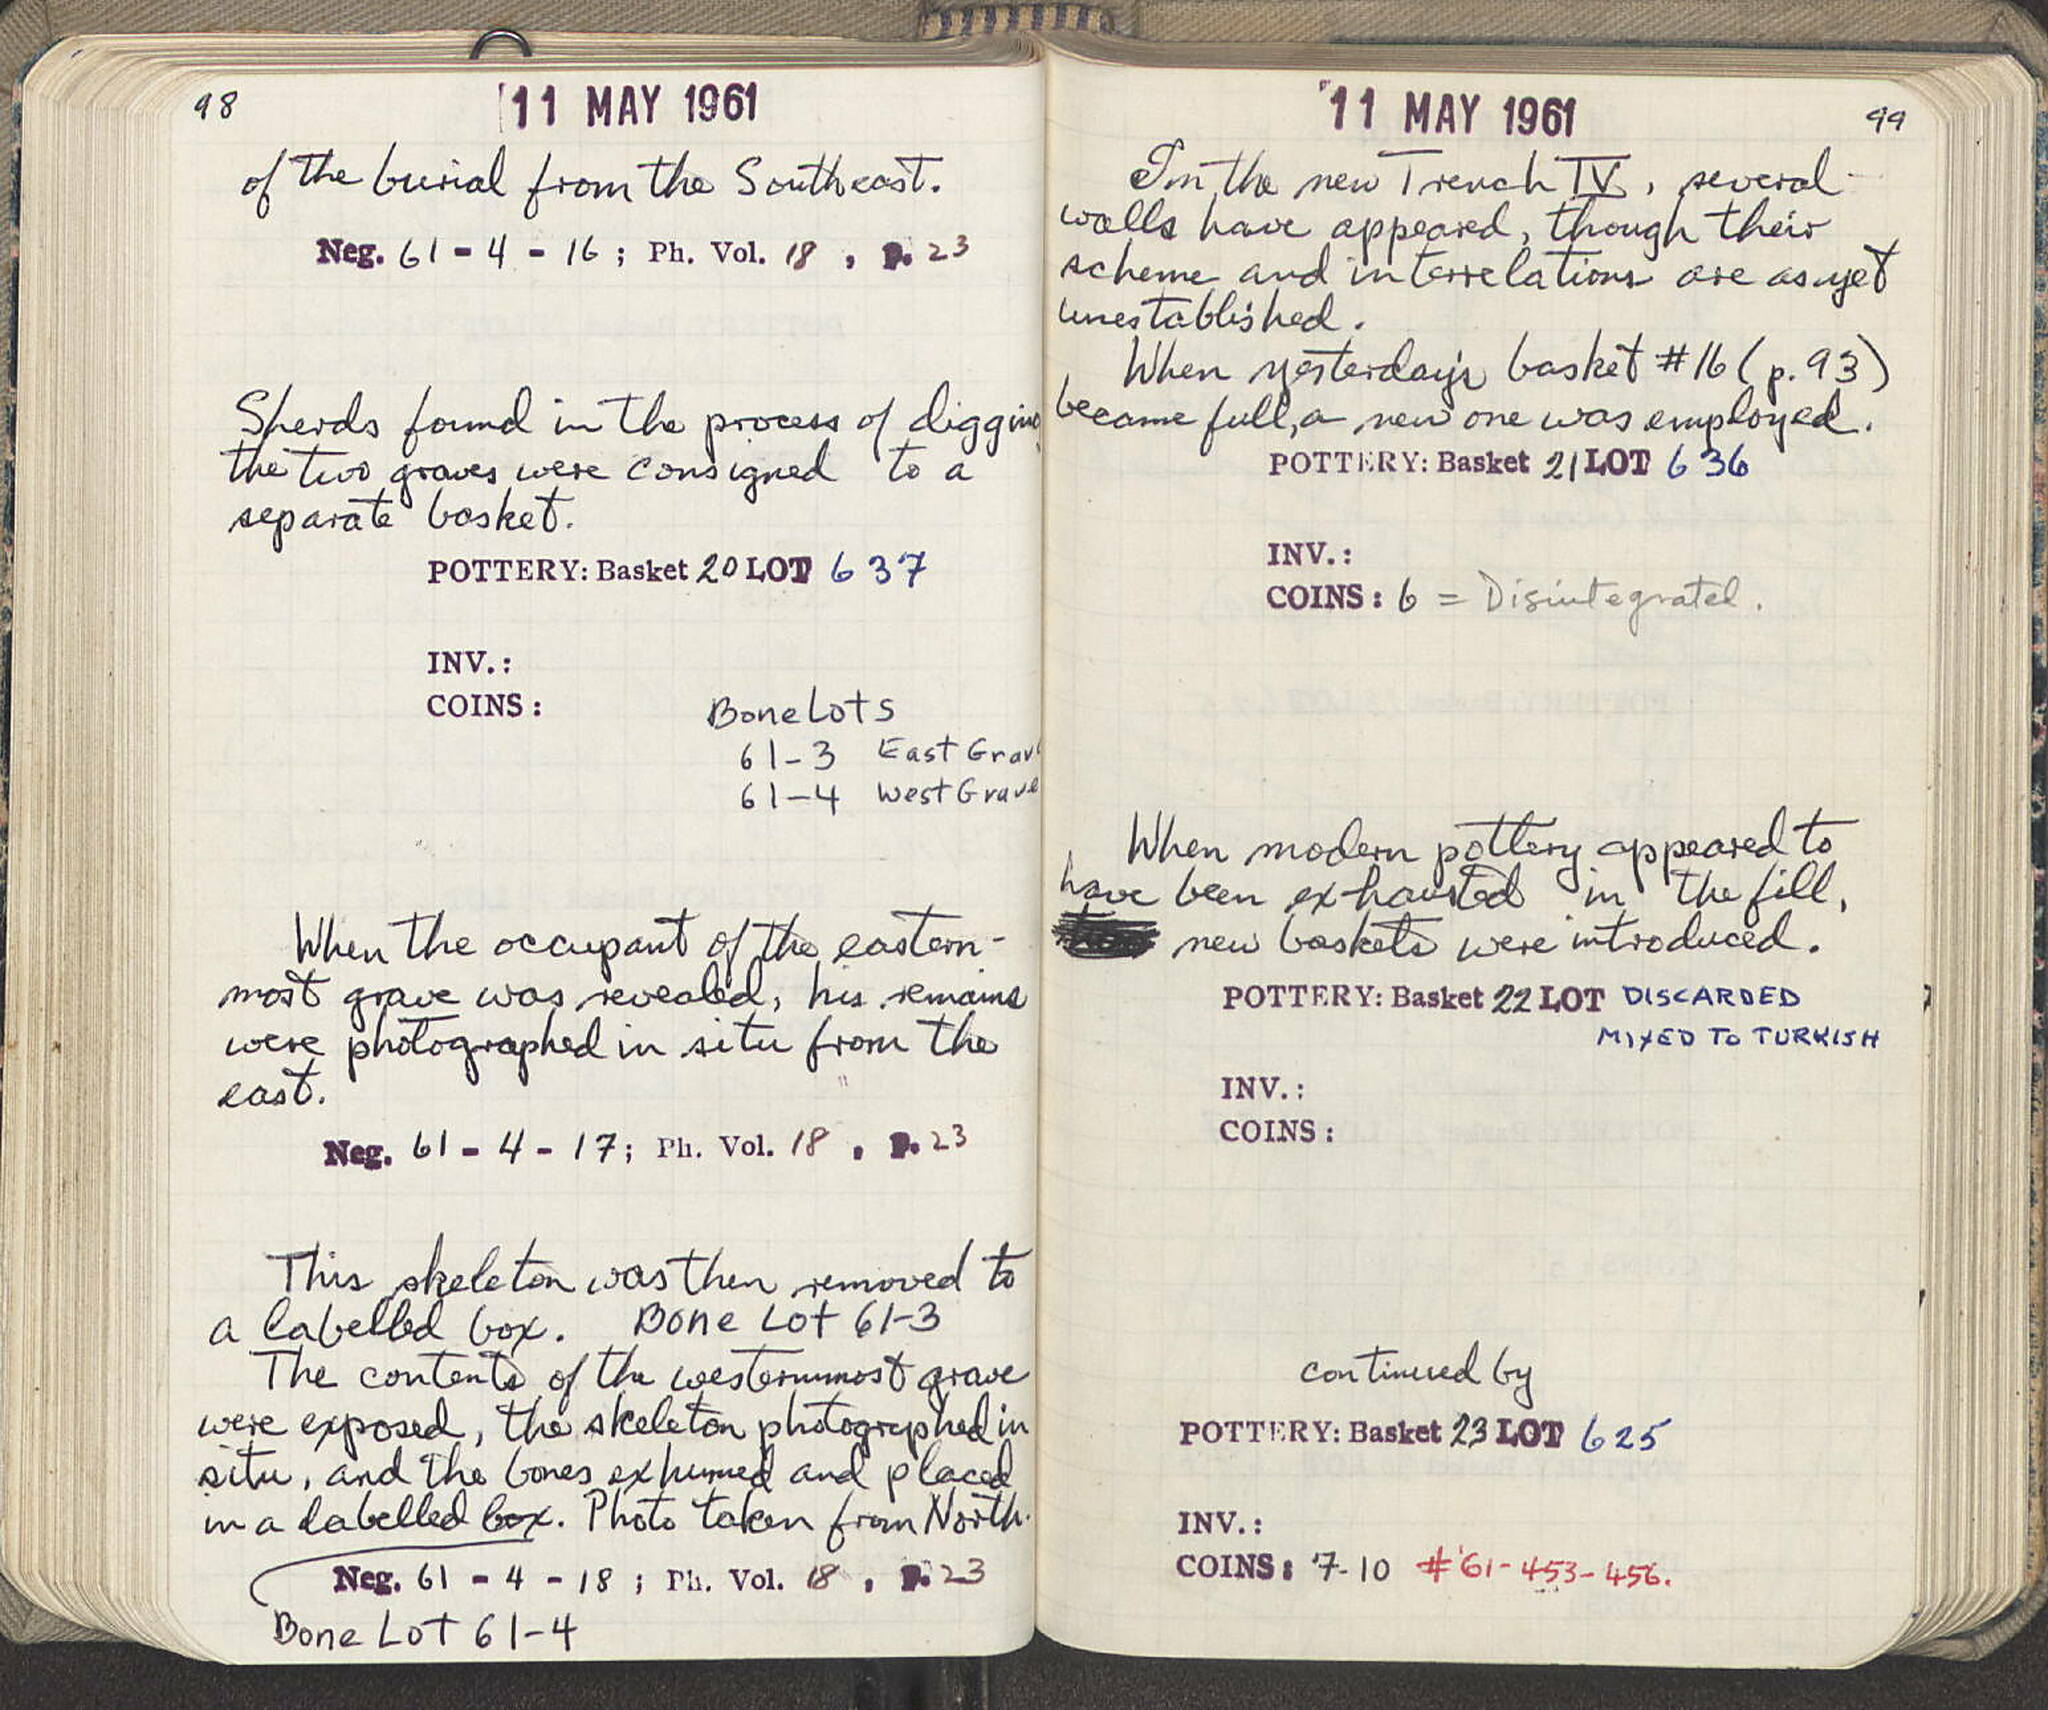 98
11 MAY 1961
of the burial from the Southeast.
Neg. 61 - 4 - 16 ; Ph. Vol. 18 , p. 23
Sherds found in the process of digging
the two graves were consigned to a
separate basket.
POTTERY: Basket 20 LOT 637
INV.:
COINS:
Bone Lots
61-3 East Grave
61-4 West Grave
When the occupant of the eastern-
most grave was revealed, his remains
were photographed in situ from the
east.
Neg. 61 - 4 - 17; Ph. Vol. 18 , p. 23
This skeleton was then removed to
a labelled box. Bone Lot 61-3
The contents of the westernmost grave
were exposed, the skeleton photographed in
situ, and the bones exhumed and placed
in a labelled box. Photo taken from North.
Neg. 61 - 4 - 18 ; Ph. Vol. 18 , p. 23
Bone Lot 61-4
11 MAY 1961
99
In the new Trench IV, several
walls have appeared, though their
scheme and interrelations are as yet
unestablished.
When yesterday's basket #16 (p. 93)
became full, a new one was employed.
POTTERY: Basket 21 LOT 636
INV.:
COINS: 6 = Disintegrated.
When modern pottery appeared to
have been exhausted in the fill,
new baskets were introduced.
POTTERY: Basket 22 LOT DISCARDED
MIXED TO TURKISH
INV.:
COINS:
continued by
POTTERY: Basket 23 LOT 625
INV.:
COINS: 7-10 #'61-453-456.